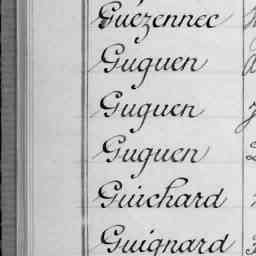 Guézennec
Guguen
Guguen
Guguen
Guichard
Guignard